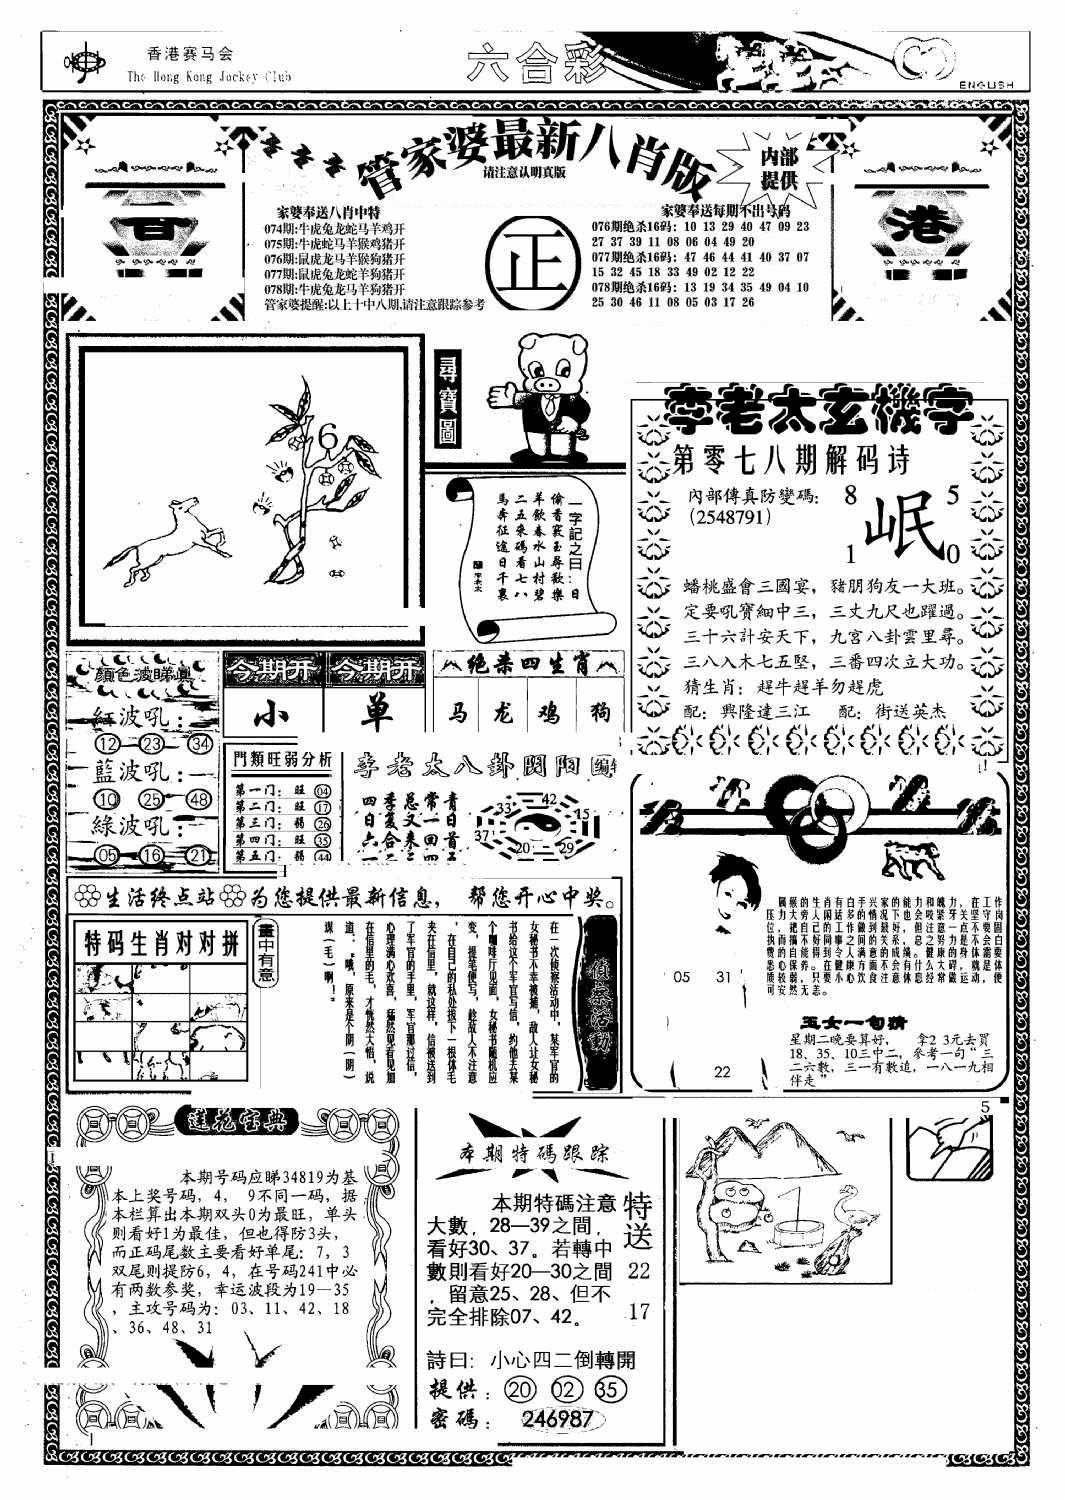 香港赛马会
The Hong Kong Jockey Club
六合彩
ENGLISH
管家婆最新八肖版
请注意认明真版
内部
提供
港
家婆奉送八肖中特
074期:牛虎兔龙蛇马羊鸡开
075期:牛虎蛇马羊猴鸡猪开
076期:鼠虎龙马羊猴狗猪开
077期:鼠虎兔龙蛇羊狗猪开
078期:牛虎兔龙马羊狗猪开
管家婆提醒:以上十中八期,请注意跟踪参考
正
家婆奉送每期不出号码
076期绝杀16码: 10 13 29 40 47 09 23
27 37 39 11 08 06 04 49 20
077期绝杀16码: 47 46 44 41 40 37 07
15 32 45 18 33 49 02 12 22
078期绝杀16码: 13 19 34 35 49 04 10
25 30 46 11 08 05 03 17 26
6
尋寶圖
一字記之曰:日
偷香竊玉尋歡樂
羊飲春水山村碧
二五来碼看七八
馬奔征途日千裏
李老太玄機字
第零七八期解码诗
內部傳真防變碼:
(2548791)
8 5
岷
1 0
蟠桃盛會三國宴, 豬朋狗友一大班。
定要吼寶細中三, 三丈九尺也躍過。
三十六計安天下, 九宮八卦雲里尋。
三八入木七五堅, 三番四次立大功。
猜生肖: 趕牛趕羊勿趕虎
配: 興隆達三江 配: 街送英杰
顏色波睇真
紅波吼:
12 23 34
藍波吼:
10 25 48
綠波吼:
05 16 21
今期开 今期开
小 单
绝杀四生肖
马 龙 鸡 狗
門類旺弱分析
第一门: 旺 04
第二门: 旺 17
第三门: 弱 26
第四门: 旺 35
第五门: 弱 44
李老太八卦陰阳
33 42 15
37 20 29
生活终点站 为您提供最新信息, 帮您开心中奖。
特码生肖对对拼
畫中有意
偵察活動
在一次侦察活动中,某军官的
女秘书不幸被捕,敌人让女秘
书给这个军官写信,约他去某
个咖啡厅见面,女秘书随机应
变,提笔便写,趁敌人不注意
,在自己的私处拔下一根体毛
夹在信里,就这样,信被送到
了军官的手里,军官那过信,
心理满心欢喜,猛然见看见加
在信里的毛,才恍然大悟,说
道:“哦,原来是个阴(阴)
谋(毛)啊!”
05 31
22
玉女一句猜
星期二晚要算好, 拿2 3元去買
18、35、10三中二,參考一句“三
二六數,三一有數追,一八一九相
伴走”
蓮花宝典
本期号码应睇34819为基
本上奖号码, 4, 9不同一码, 据
本栏算出本期双头0为最旺, 单头
则看好1为最佳, 但也得防3头,
而正码尾数主要看好单尾: 7, 3
双尾则提防6, 4, 在号码241中必
有两数参奖, 幸运波段为19—35
, 主攻号码为: 03、11、42、18
、36、48、31
本期特碼跟踪
本期特碼注意
大數, 28—39之間,
看好30、37。若轉中
數則看好20—30之間
, 留意25、28、但不
完全排除07、42。
特送
22
17
詩曰: 小心四二倒轉開
提供: 20 02 35
密碼: 246987
5